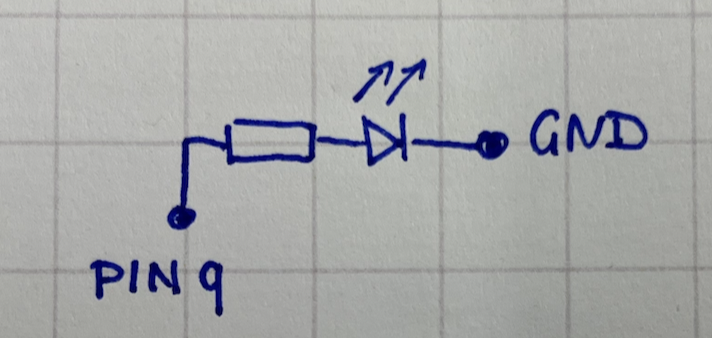 GND
PIN 9